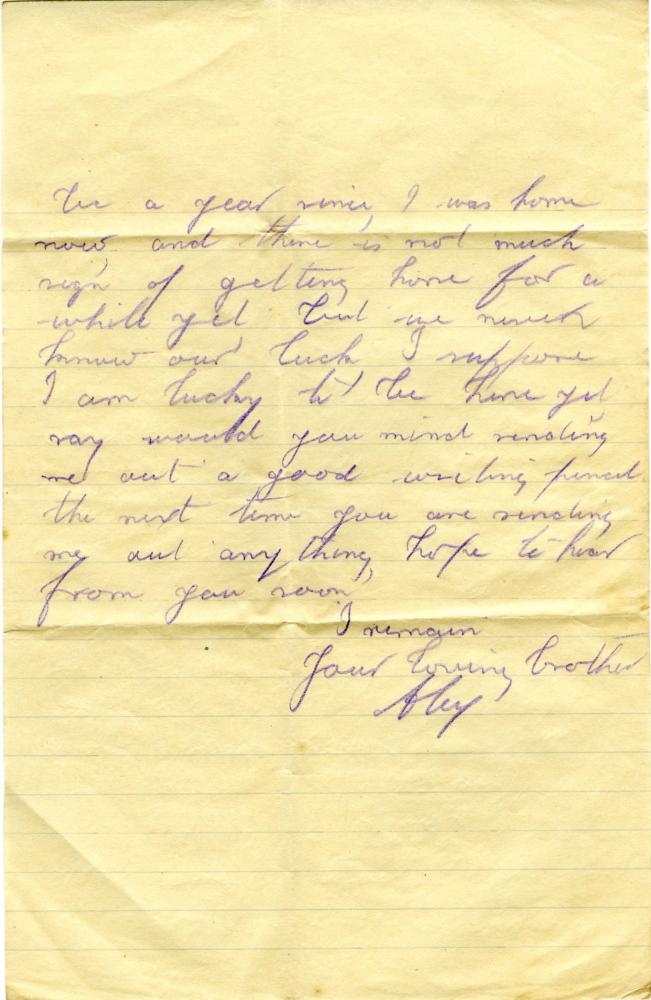 be a year since I was home
now and there is not much
sign of getting home for a
while yet but we never
know our luck I suppose
I am lucky to be here yet
say would you mind sending
me out a good writing pencil
the next time you are sending
me out any thing hope to hear
from you soon
I remain
Your loving brother